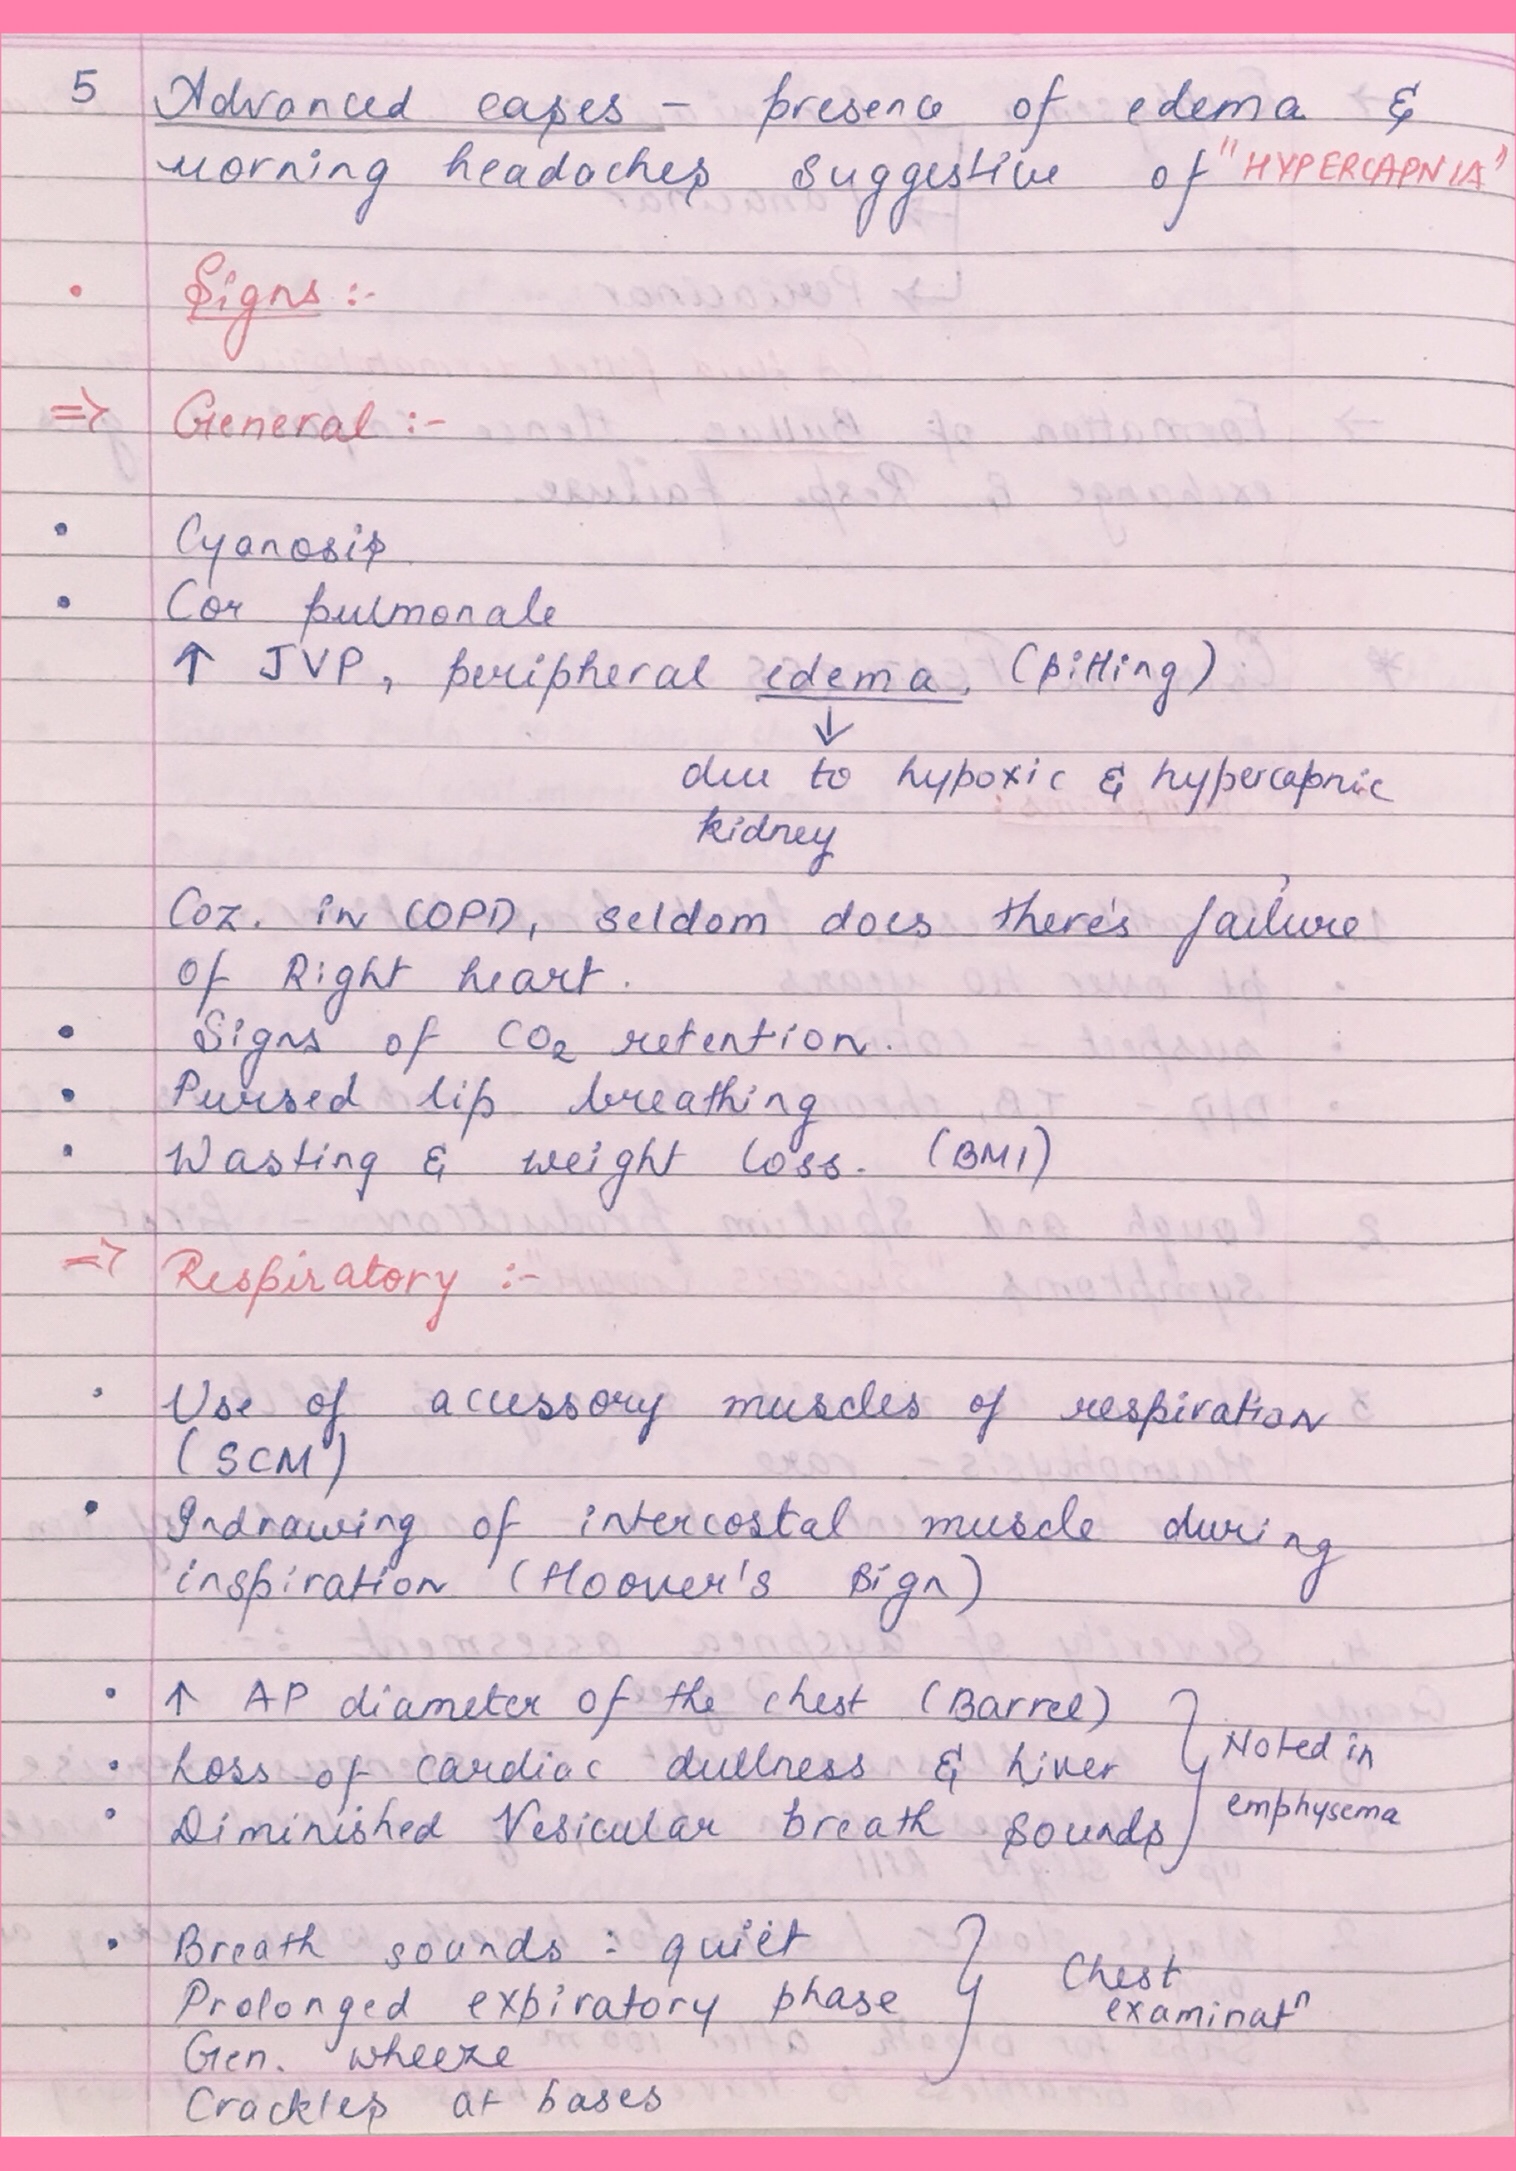 5 Advanced cases - presence of edema &
morning headaches suggestive of "HYPERCAPNIA"
• Signs :-
=> General :-
• Cyanosis
• Cor pulmonale
↑ JVP, peripheral edema. (pitting)
↓
due to hypoxic & hypercapnic
kidney
Coz. in COPD, seldom does there's failure
of Right heart.
• Signs of CO2 retention.
• Pursed lip breathing
• Wasting & weight loss. (BMI)
=> Respiratory :-
• Use of accessory muscles of respiration
(SCM)
• Indrawing of intercostal muscle during
inspiration (Hoover's sign)
• ↑ AP diameter of the chest (Barrel)
• Loss of cardiac dullness & liver
• Diminished Vesicular breath sounds
Noted in
emphysema
• Breath sounds : quiet
Prolonged expiratory phase
Gen. wheeze
Crackles at bases
Chest
examinatn